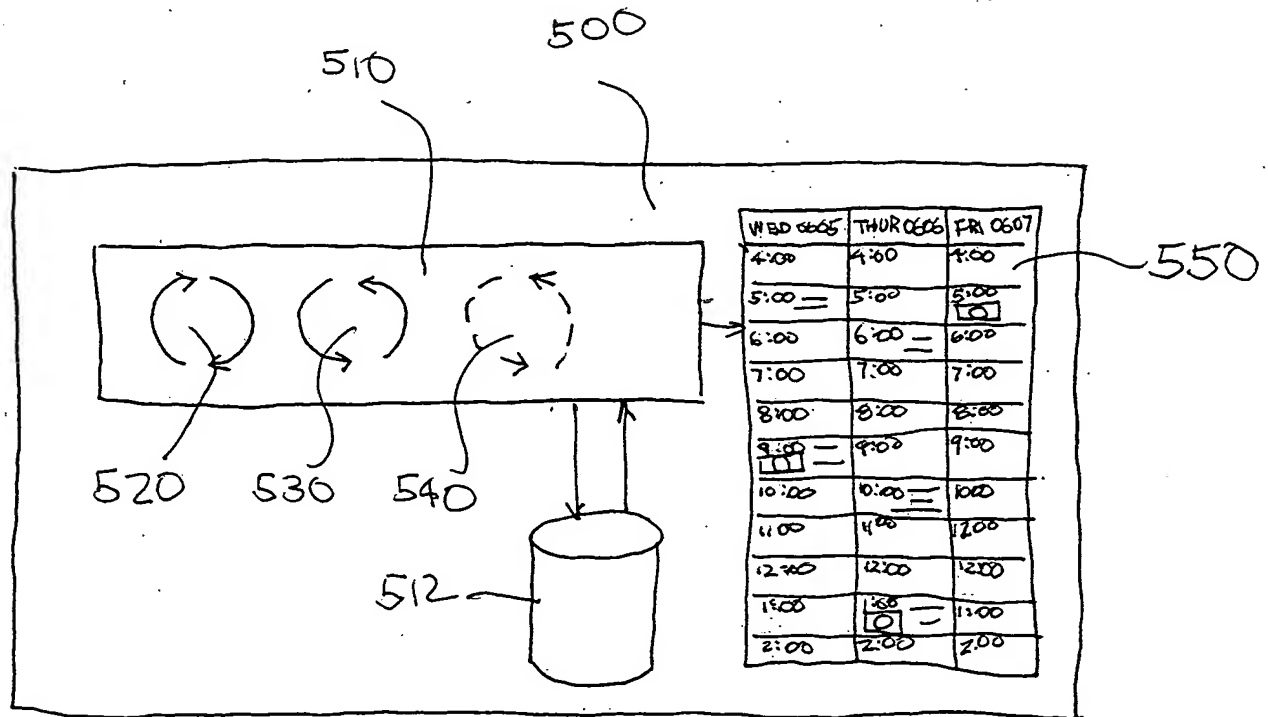 500
510
WED 0605 THUR 0606 FRI 0607
4:00 4:00 4:00
550
5:00 5:00 5:00
6:00 6:00 6:00
7:00 7:00 7:00
8:00 8:00 8:00
9:00 9:00 9:00
520 530 540
10:00 10:00 1000
11:00 11:00 12:00
12:00 12:00 12:00
512
1:00 1:00 1:00
2:00 2:00 2:00